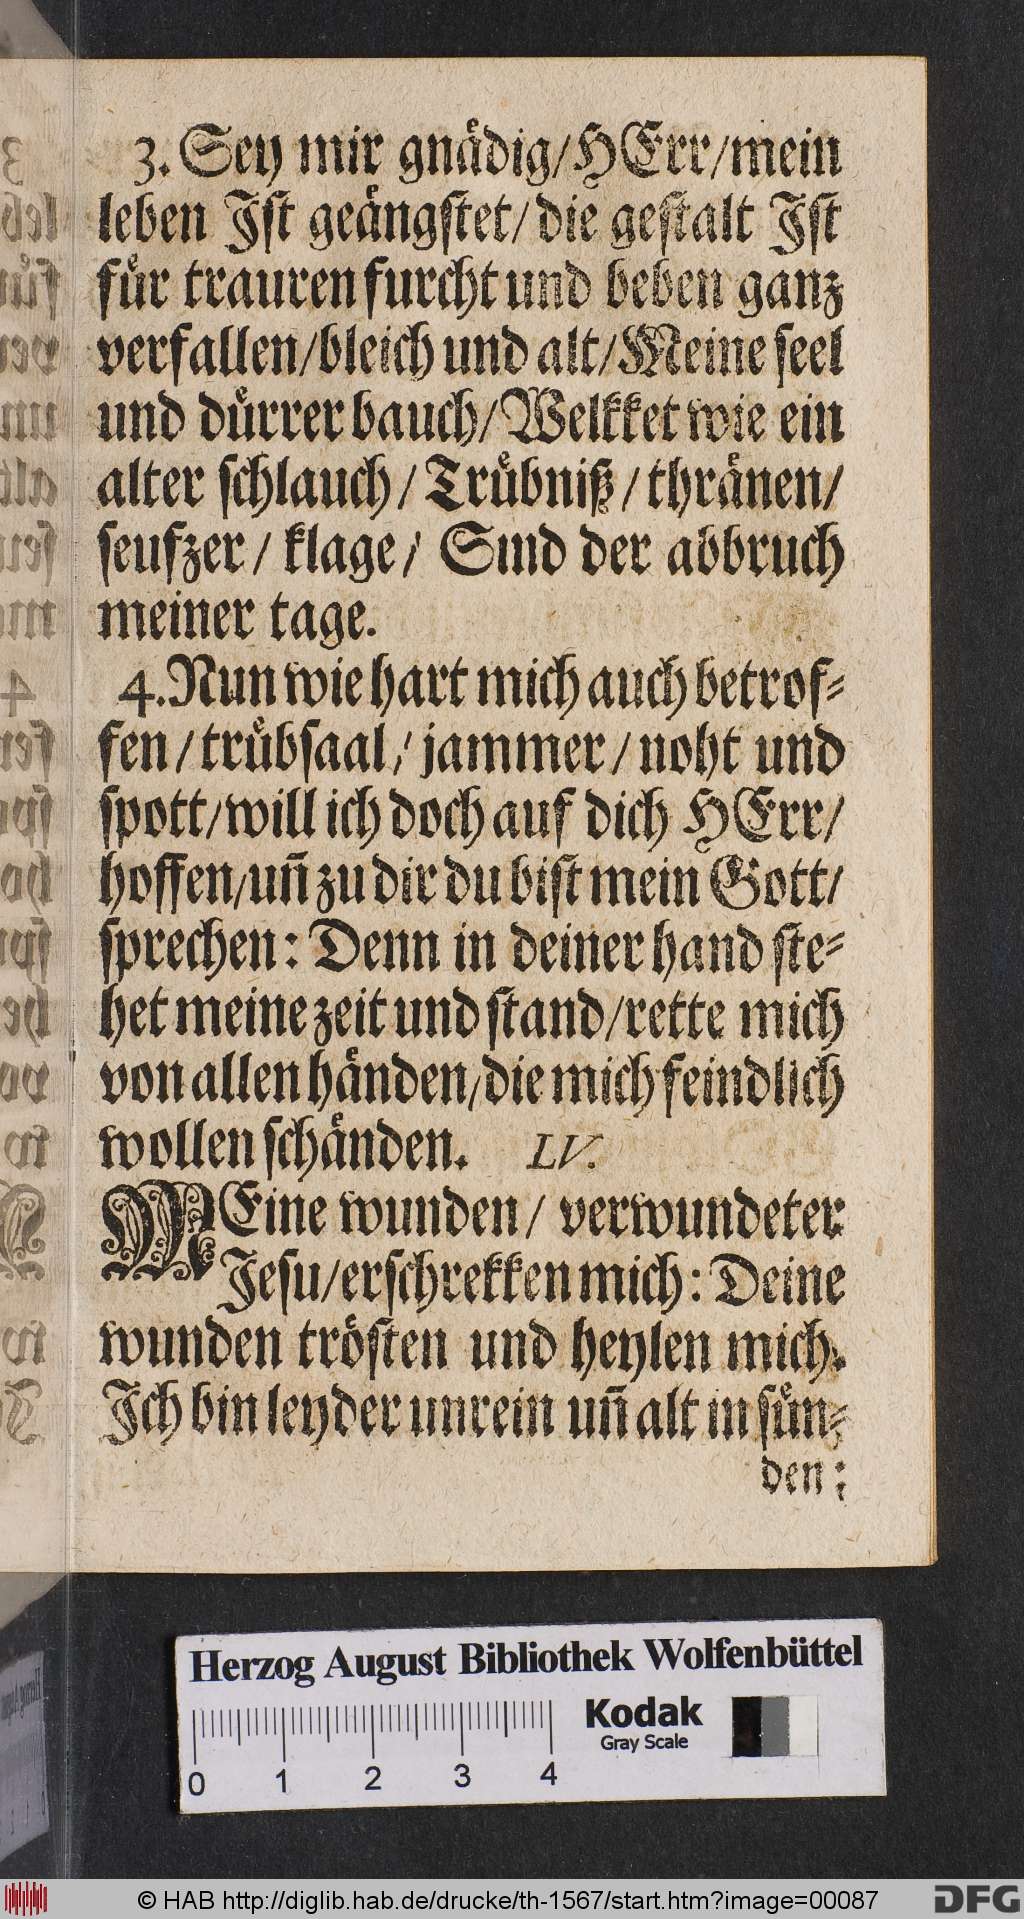 3. Sey mir gnådig/HErr/mein
leben Jst geångstet/die gestalt Jst
fůr trauren furcht und beben ganz
verfallen/bleich und alt/Meine seel
und důrrer bauch/Welkket wie ein
alter schlauch/Trůbniß/thrånen/
seufzer/klage/Sind der abbruch
meiner tage.
4. Nun wie hart mich auch betrof-
fen/trůbsaal/jammer/noht und
spott/will ich doch auf dich HErr/
hoffen/uñ zu dir du bist mein Gott/
sprechen: Denn in deiner hand ste-
het meine zeit und stand/rette mich
von allen hånden/die mich feindlich
wollen schånden. LV.
MEine wunden/verwundeter
Jesu/erschrekken mich: Deine
wunden trösten und heylen mich.
Jch bin leyder unrein uñ alt in sůn-
den:
Herzog August Bibliothek Wolfenbüttel
Kodak
Gray Scale
0 1 2 3 4
© HAB http://diglib.hab.de/drucke/th-1567/start.htm?image=00087
DFG